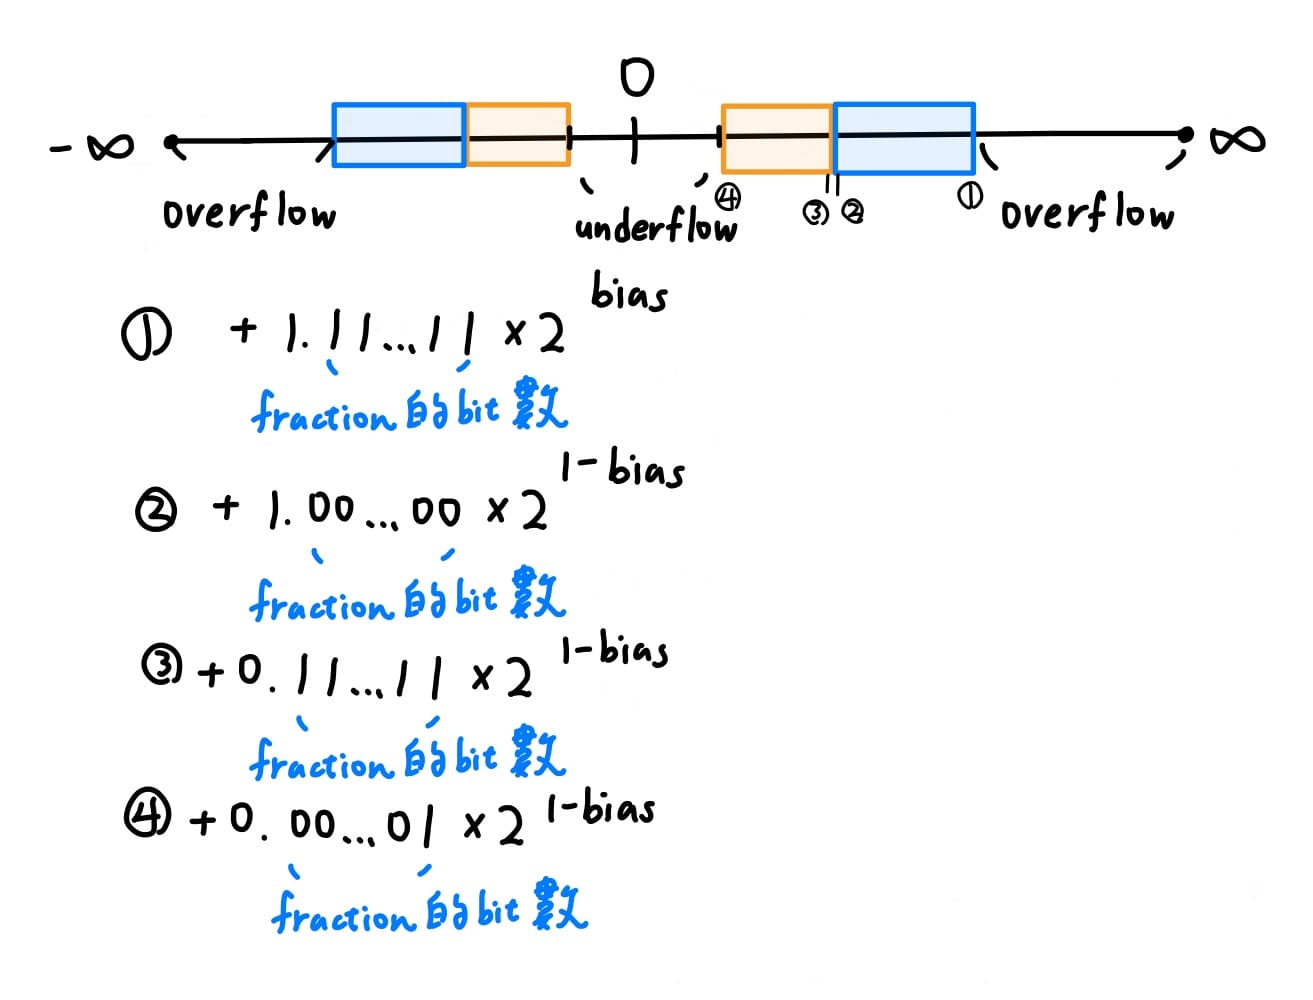 0
-∞ ∞
overflow underflow ④ ③ ② ① overflow
① + 1.11...11 × 2^bias
fraction的bit數
② + 1.00...00 × 2^1-bias
fraction的bit數
③ + 0.11...11 × 2^1-bias
fraction的bit數
④ + 0.00...01 × 2^1-bias
fraction的bit數